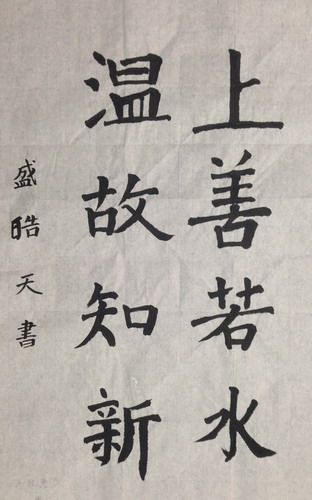 上善若水
温故知新
盛皓天書